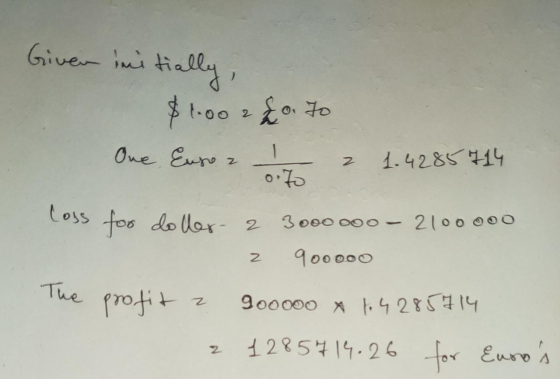 Given initially,
$1.00 = £0.70
One Euro = 1/0.70 = 1.4285714
Loss for dollar - = 3000000 - 2100000
= 900000
The profit = 900000 * 1.4285714
= 1285714.26 for Euro's